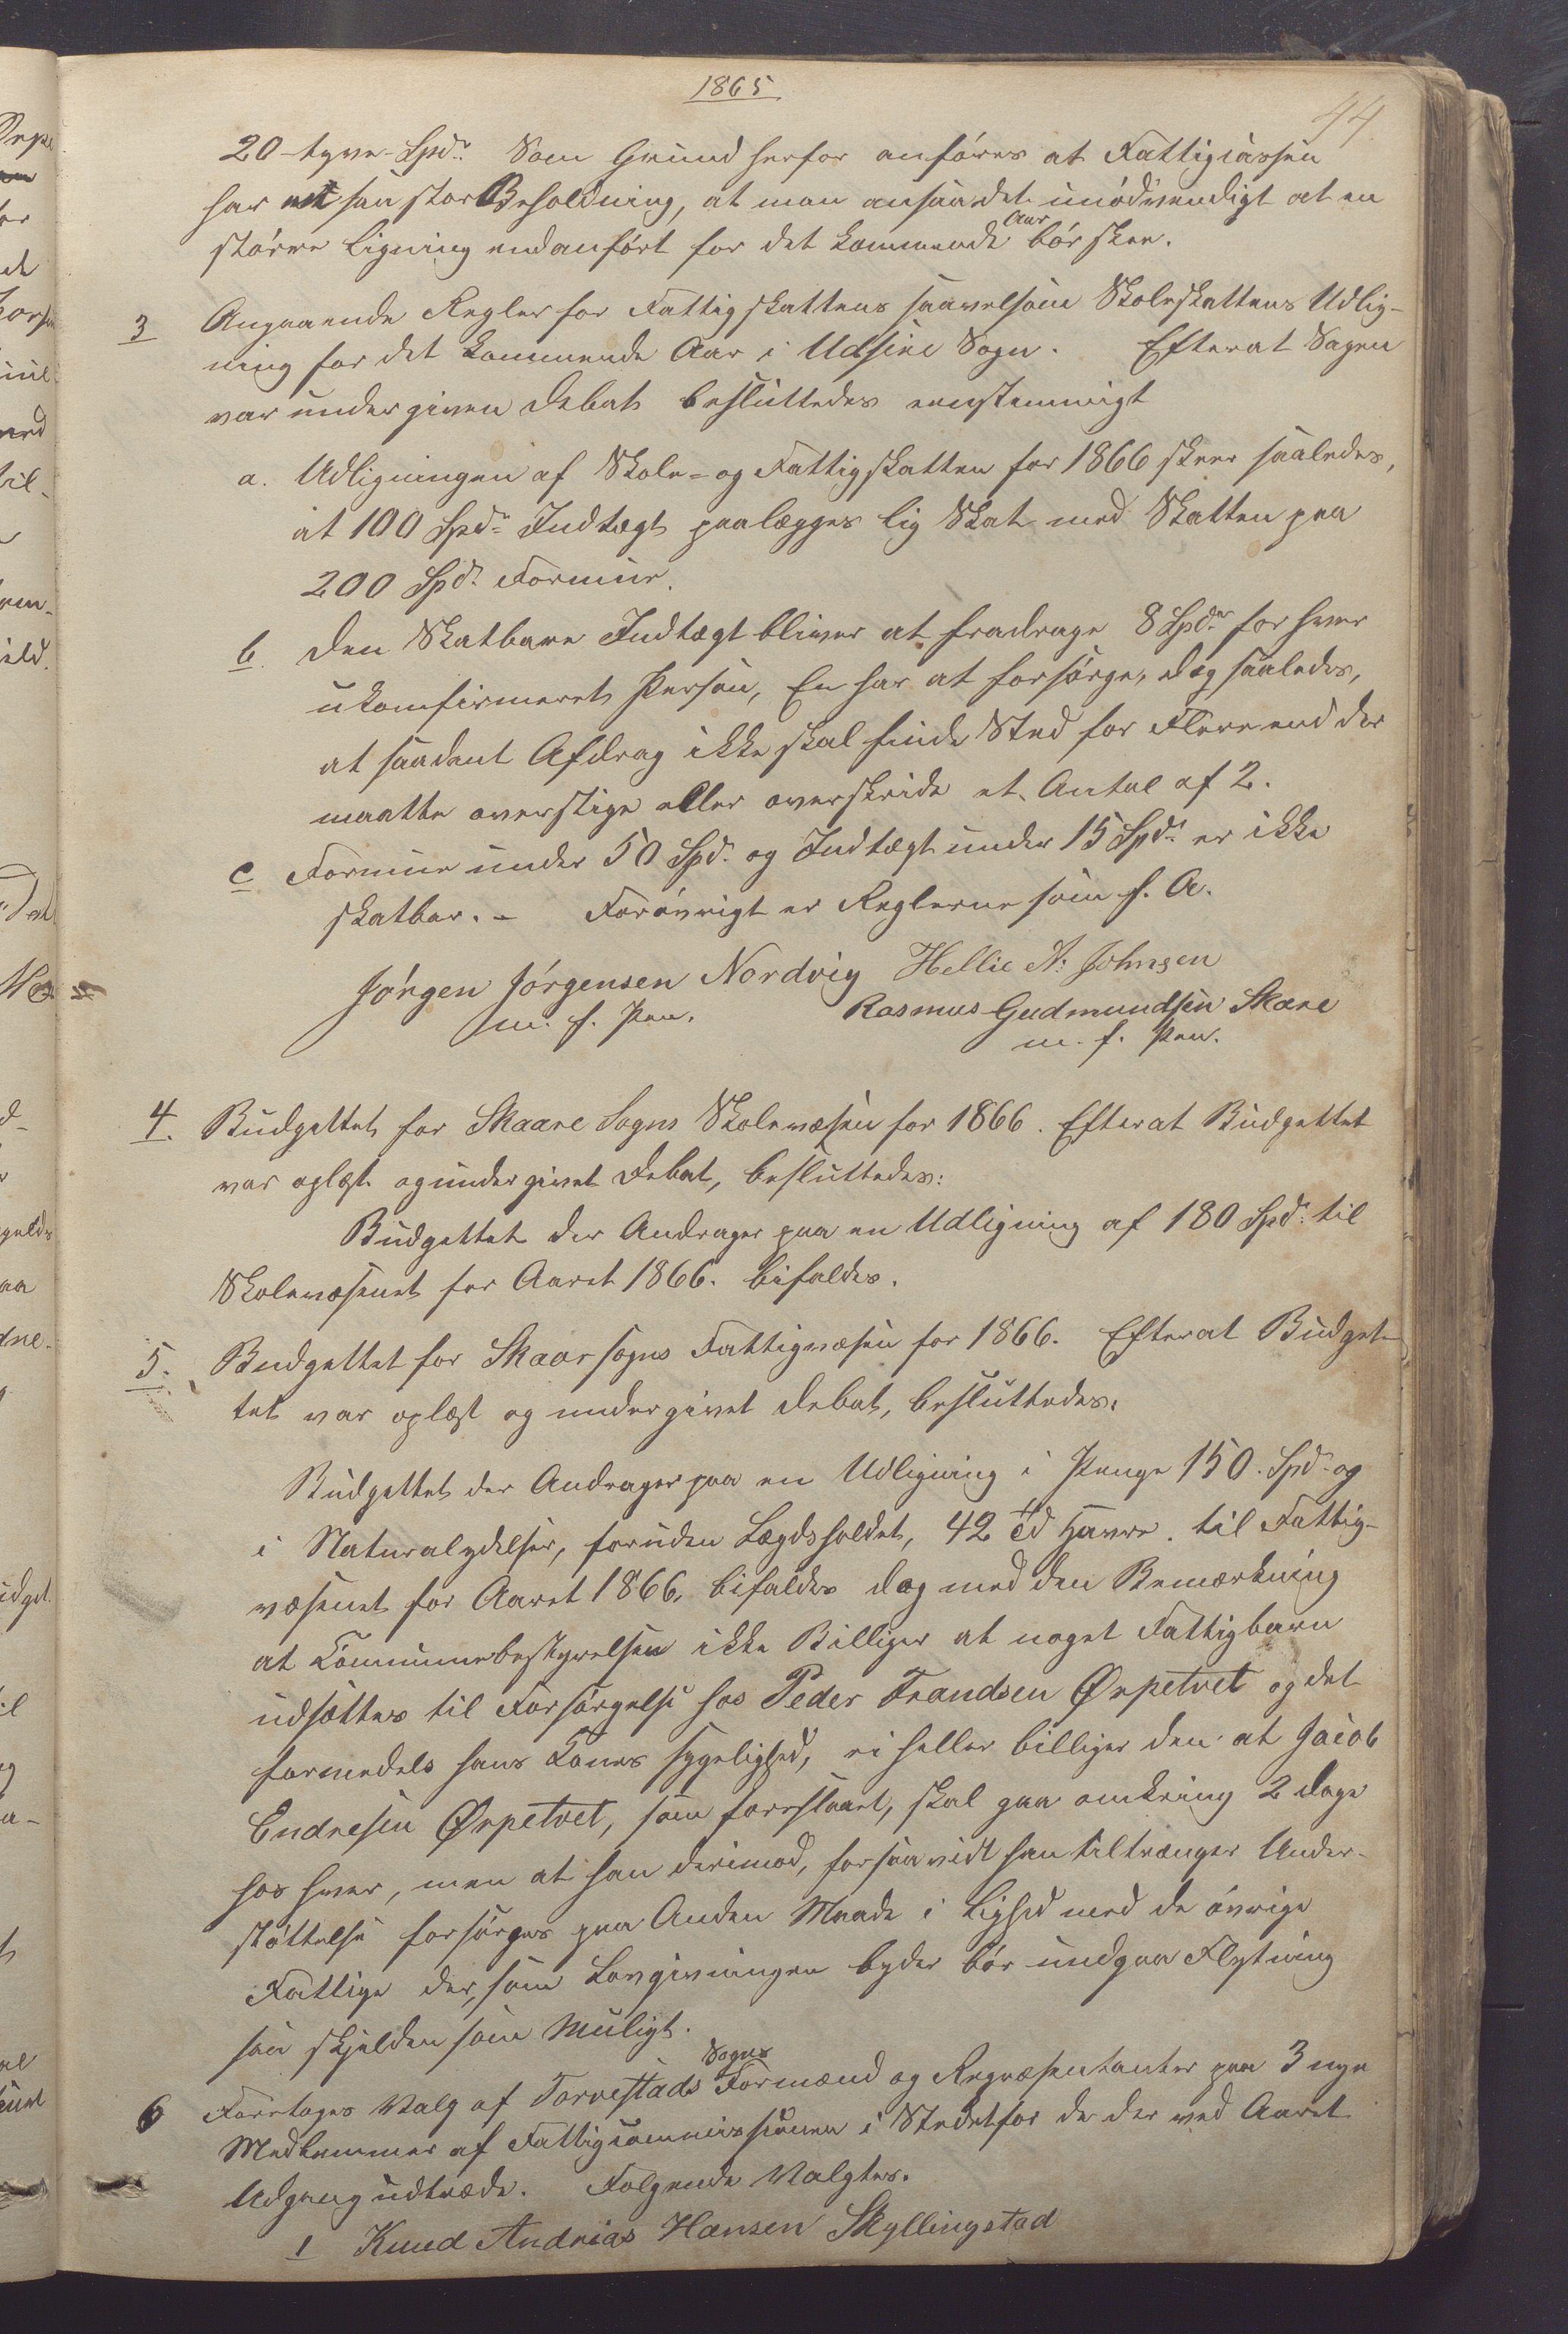 1865
44.
20 - tyve - Spdr. Som Grund herfor anføres at Fattigcassen
har saa stor Beholdning, at man ansaa det unødvendigt at en
større Ligning end anført for det kommende Aar bør skee.
3 Angaaende Regler for Fattigskattens saavelsom Skoleskattens Udlig-
ning for det kommende Aar i Udsire Sogn. Efterat Sagen
var undergiven Debat besluttedes eenstemmigt
a. Udligningen af Skole- og Fattigskatten for 1866 skeer saaledes,
at 100 Spdr. Indtægt paalægges lig Skat med Skatten paa
200 Spd. Formue.
b. Den Skatbare Indtægt bliver at fradrage 8 Spdr. for hver
ukonfirmeret Person, En har at forsørge, dog saaledes,
at saadant Afdrag ikke skal finde Sted for Flere end der
maatte overstige eller overskride et Antal af 2.
c Formue under 50 Spd. og Indtægt under 15 Spdr. er ikke
skatbar. - Forøvrigt er Reglerne som f. A.
Jørgen Jørgensen Nordvig Hellie A: Johnsen
m. f. Pen. Rasmus Gudmundsen Skare
m. f. Pen.
4. Budgettet for Skaare Sogns Skolevæsen for 1866. Efterat Budgettet
var oplæst og undergivet Debat, besluttedes:
Budgettet der Andrager paa en Udligning af 180 Spdr. til
Skolevæsenet for Aaret 1866. bifaldes.
5. Budgettet for Skaar sogns Fattigvæsen for 1866. Efterat Budget-
tet var oplæst og undergivet Debat, besluttedes:
Budgettet der Andrager paa en Udligning i Penge 150. Spdr. og
i Naturalydelser, foruden Lægdsholdet, 42 Td Havre. til Fattig-
væsenet for Aaret 1866, bifaldes dog med den Bemærkning
at Communebestyrelsen ikke Billiger at noget Fattigbarn
udsættes til Forsørgelse hos Peder Trandsen Ørpetvet og det
formedels hans Kones sygelighed, ei heller billiger den at Jacob
Endresen Ørpetvet, som foreslaaet, skal gaa omkring 2 dage
hos hver, men at han derimod, forsaavidt han tiltrænger Under-
støttelse forsørges paa Anden Maade i Lighed med de øvrige
Fattige der, som Lovgivningen byder bør undgaa Flytning
saa skjelden som Muligt.
6 Foretoges Valg af Torvestads Sogns Formænd og Repræsentanter paa 3 nye
Medlemmer af Fattigcommissionen i Stedet for de der ved Aaret
Udgang udtræde. Følgende Valgtes.
1 Knud Andreas Hansen Skyllingstad